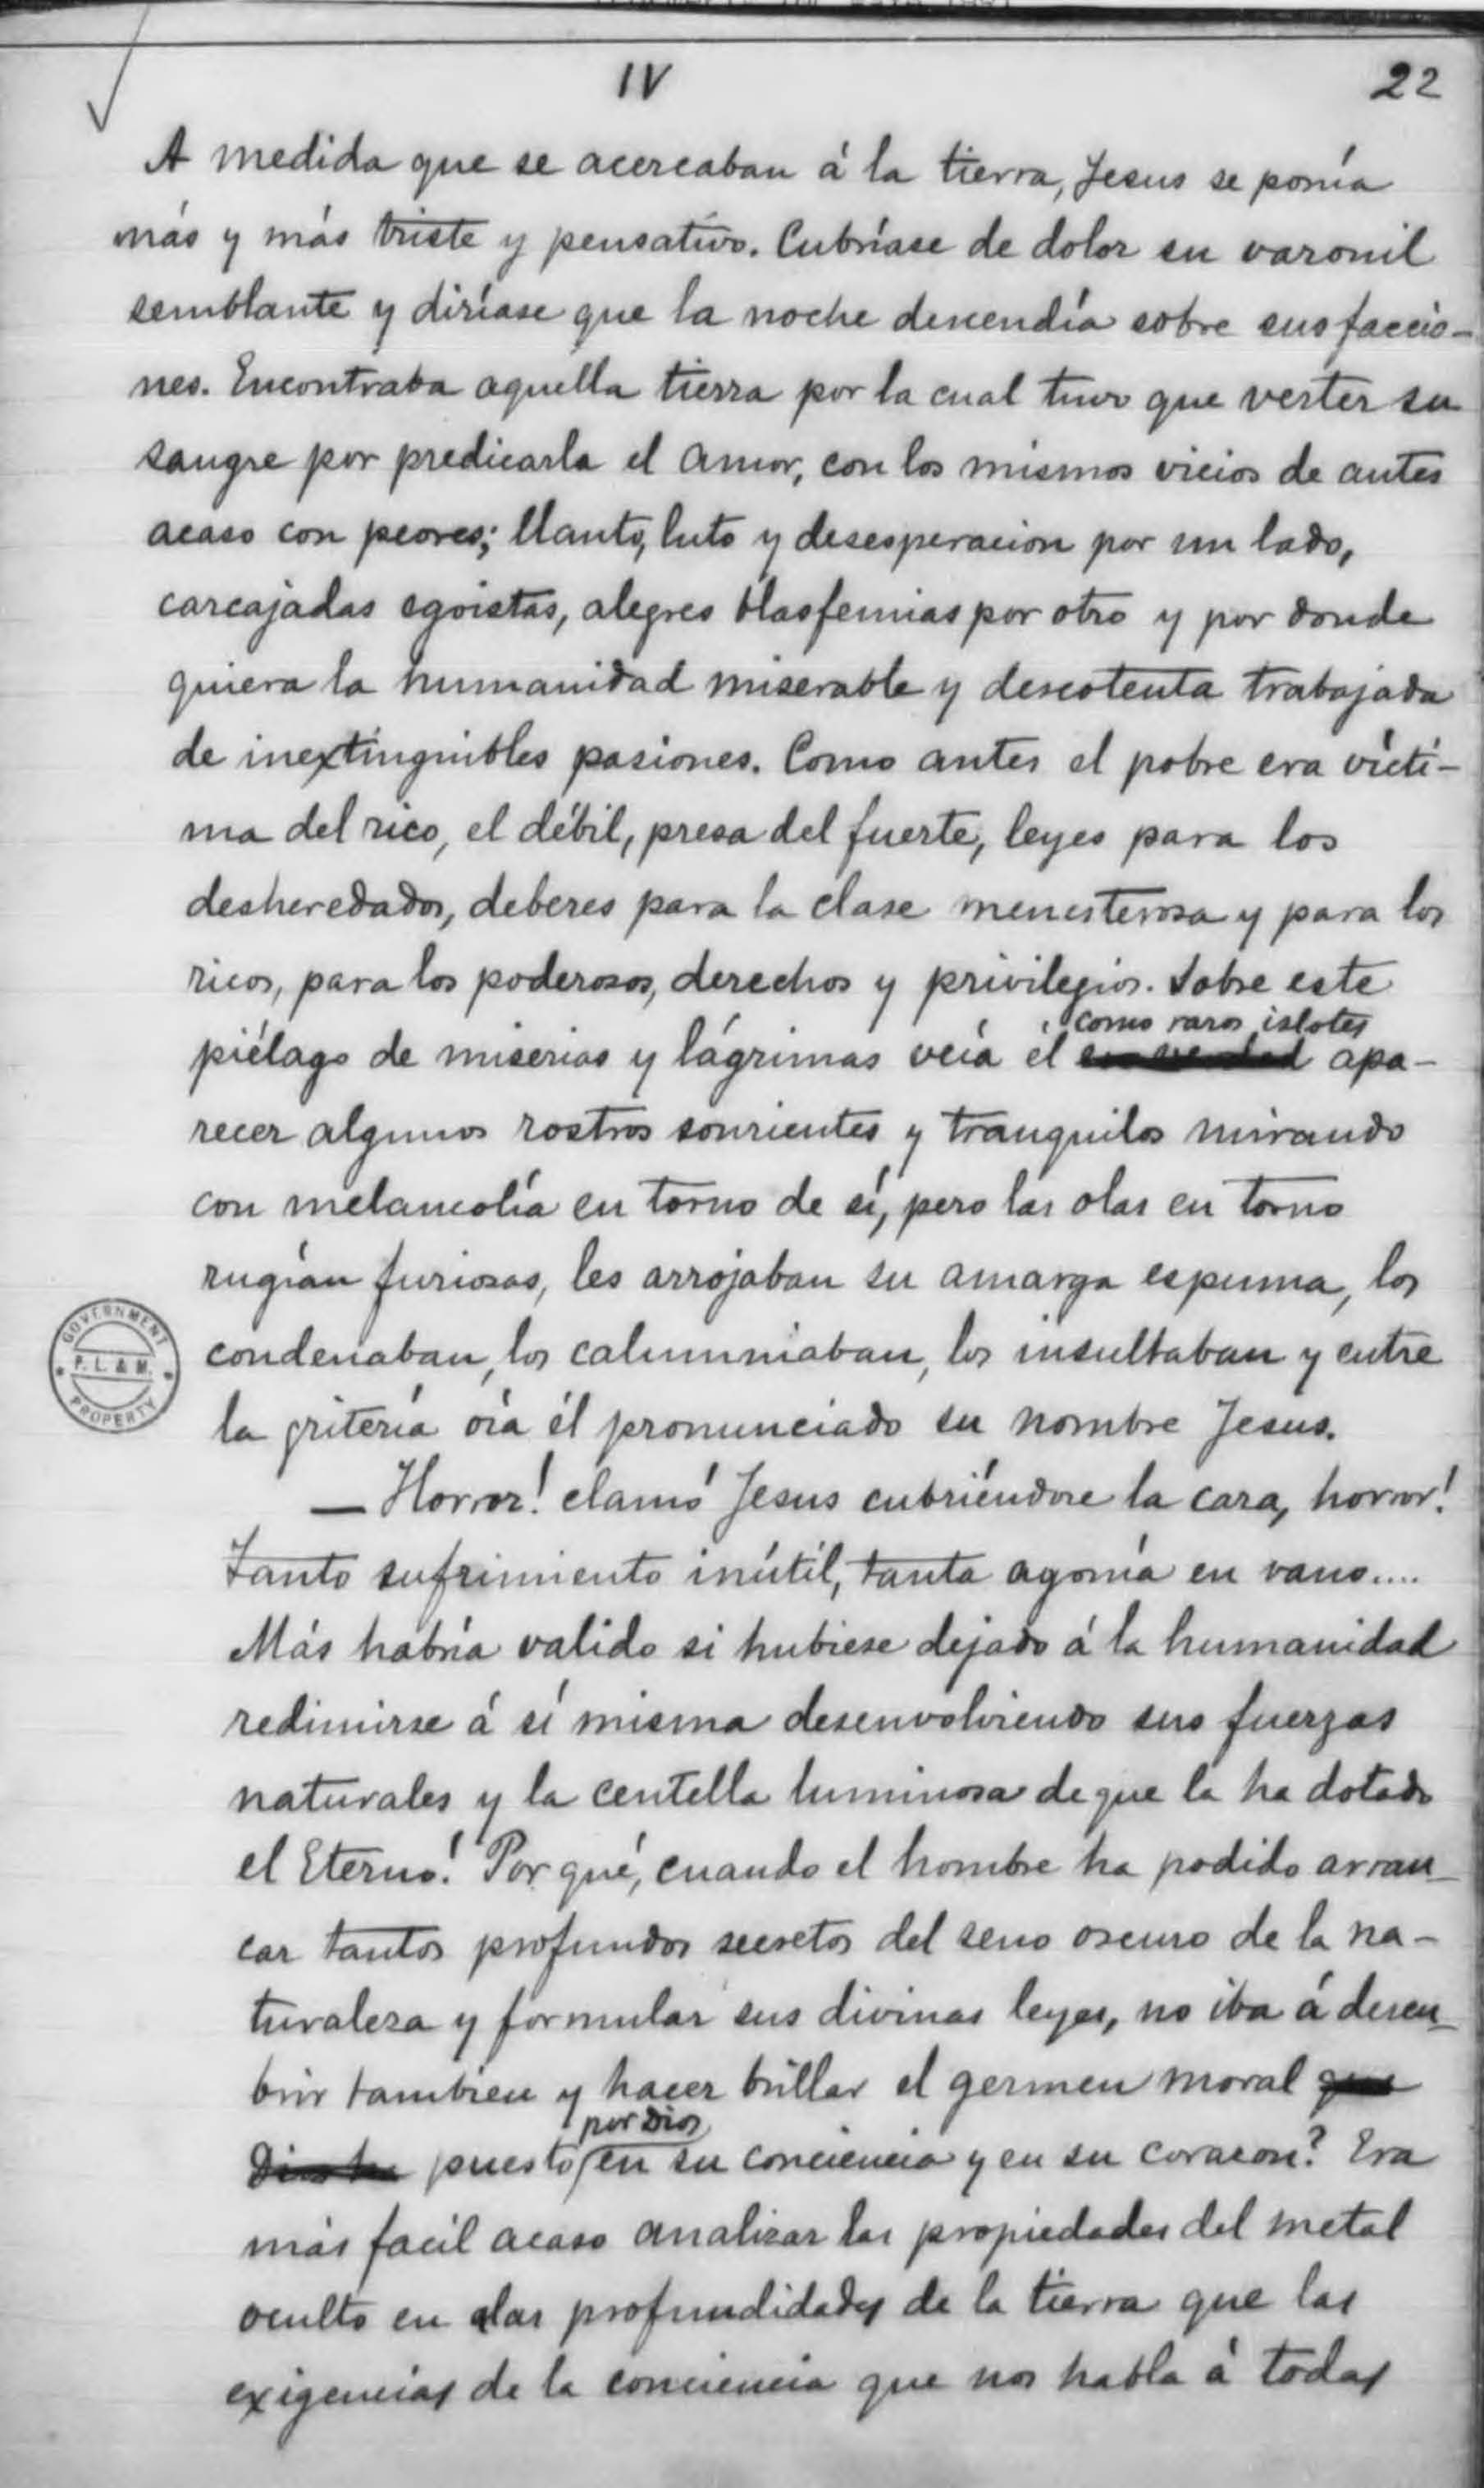 IV
22
A medida que se acercaban á la tierra, Jesus se ponía
más y más triste y pensativo. Cubríase de dolor su varonil
semblante y diríase que la noche descendía sobre sus faccio-
nes. Encontraba aquella tierra por la cual tuvo que verter su
sangre por predicarla el amor, con los mismos vicios de antes
acaso con peores; llanto, luto y desesperacion por un lado,
carcajadas egoistas, alegres blasfemias por otro y por donde
quiera la humanidad miserable y descotenta trabajada
de inextinguibles pasiones. Como antes el pobre era vícti-
ma del rico, el débil, presa del fuerte, leyes para los
desheredados, deberes para la clase menesterosa y para los
ricos, para los poderosos, derechos y privilegios. Sobre este
como raros islotes
piélago de miserias y lágrimas veía él apa-
recer algunos rostros sonrientes y tranquilos mirando
con melancolía en torno de sí, pero las olas en torno
rugían furiosas, les arrojaban su amarga espuma, los
condenaban, los calumniaban, los insultaban y entre
la gritería oía él pronunciado su nombre Jesus.
— Horror! clamó Jesus cubriéndose la cara, horror!
Tanto sufrimiento inútil, tanta agonía en vano....
Más habría valido si hubiese dejado á la humanidad
redimirse á sí misma desenvolviendo sus fuerzas
naturales y la centella luminosa de que la ha dotado
el Eterno! Por qué, cuando el hombre ha podido arran-
car tantos profundos secretos del seno oscuro de la na-
turaleza y formular sus divinas leyes, no iba á descu-
brir tambien y hacer brillar el germen moral que
por Dios
Dios ha puesto en su conciencia y en su corazon? Era
más facil acaso analizar las propiedades del metal
oculto en las profundidades de la tierra que las
exigencias de la conciencia que nos habla á todas
GOVERNMENT
P. L. & M.
PROPERTY